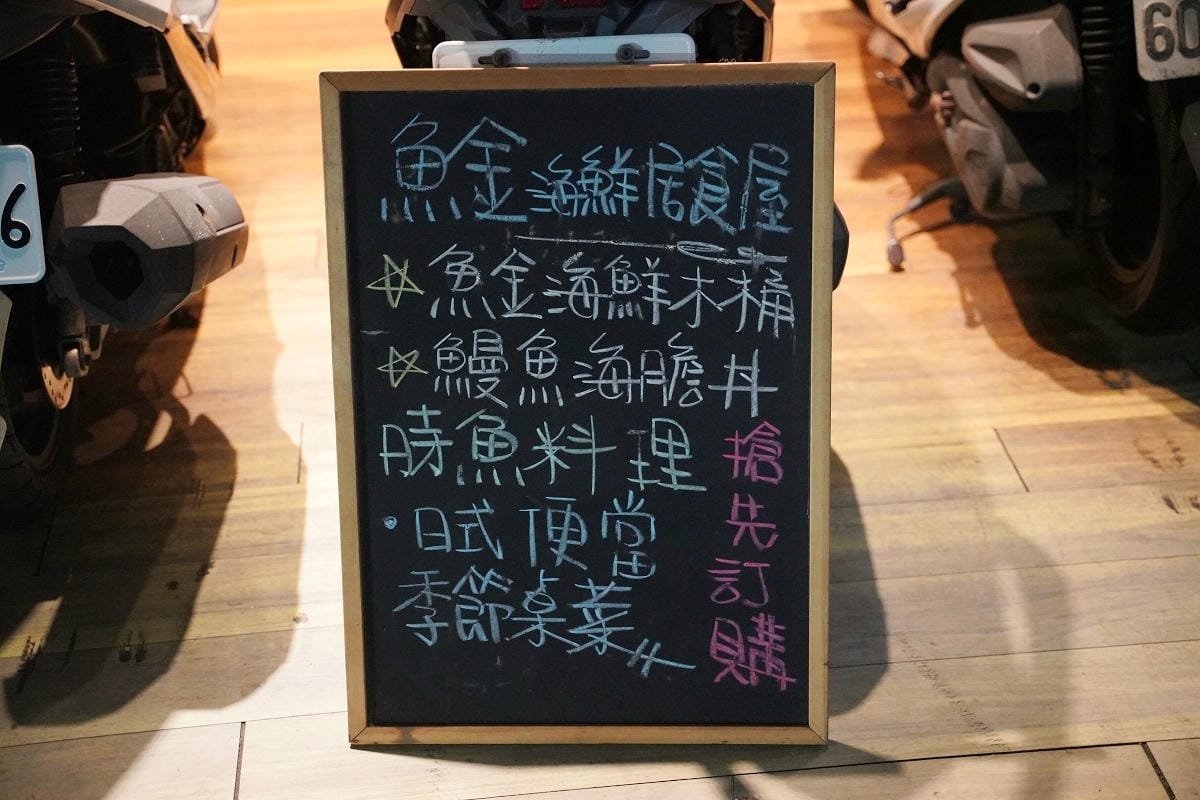 魚金 海鮮居食屋
魚金海鮮木桶
鰻魚海膽丼
時魚料理
日式便當
季節桌菜
搶先訂購
6
60